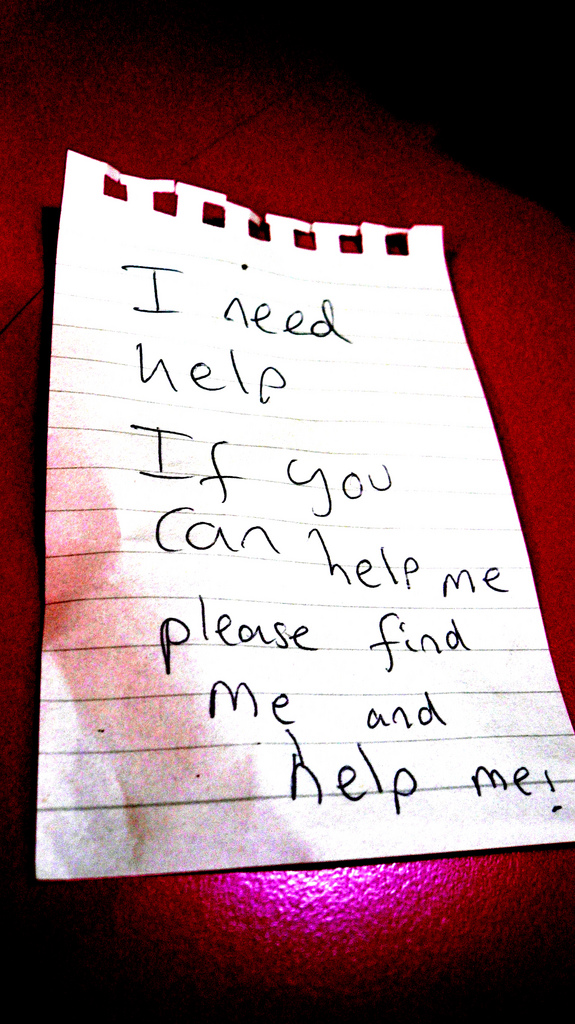 I need
help
If you
can help me
please find
me and
help me!